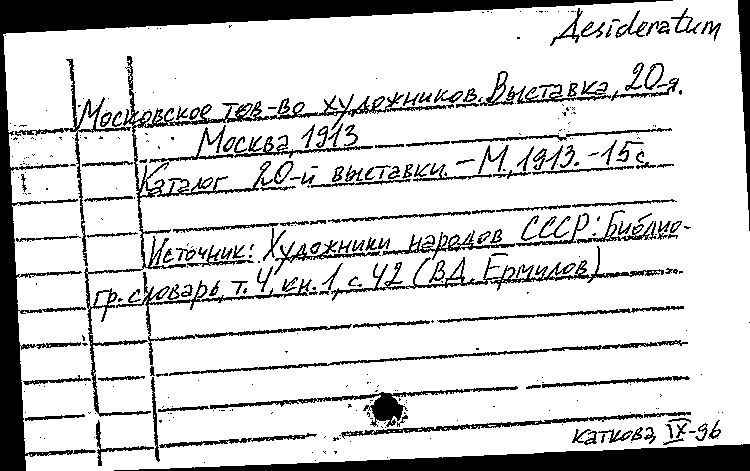 Desideratum
Московское тов-во художников. Выставка, 20-я.
Москва, 1913
Каталог 20-й выставки. - М., 1913. - 15 с.
Источник: Художники народов СССР: Библио-
гр. словарь, т. 4, кн. 1, с. 42 (В.Д. Ермилов)
Каткова, IX-96